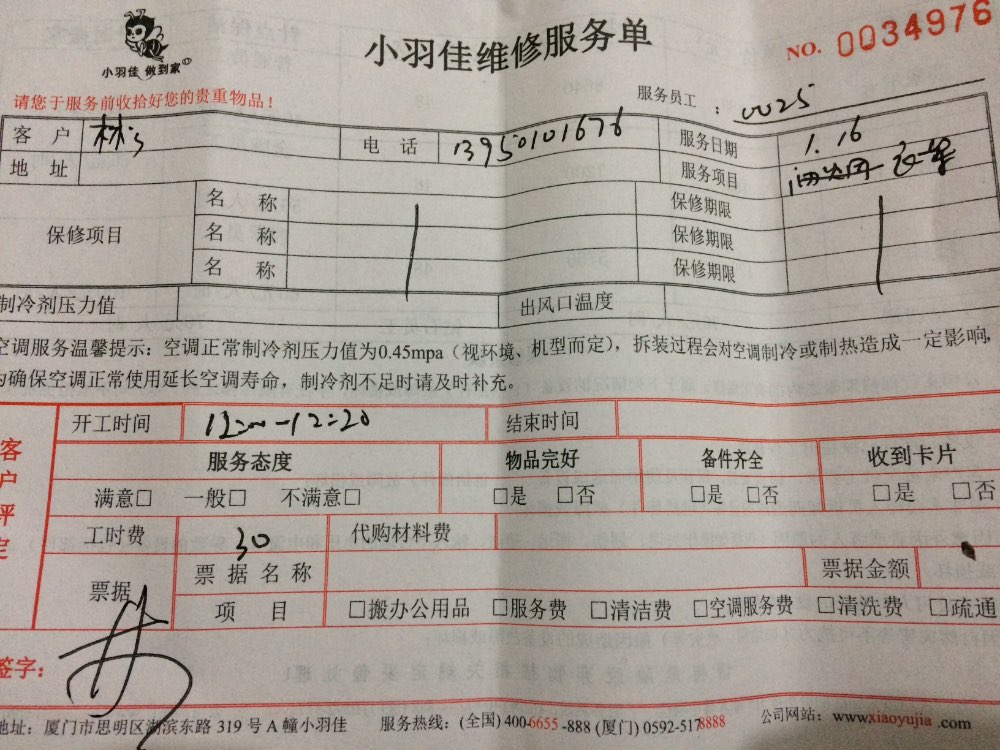 小羽佳 做到家
小羽佳维修服务单
NO. 0034976
请您于服务前收拾好您的贵重物品！
服务员工 ： 0025
客 户 林 电 话 13950101676 服务日期 1.16
地 址 服务项目
保修项目 名 称 保修期限
名 称 保修期限
名 称 保修期限
制冷剂压力值 出风口温度
空调服务温馨提示：空调正常制冷剂压力值为0.45mpa（视环境、机型而定），拆装过程会对空调制冷或制热造成一定影响，
为确保空调正常使用延长空调寿命，制冷剂不足时请及时补充。
客户评定
开工时间 12:00-12:20 结束时间
服务态度 物品完好 备件齐全 收到卡片
满意□ 一般□ 不满意□ □是 □否 □是 □否 □是 □否
工时费 30 代购材料费
票据 票 据 名 称 票据金额
项 目 □搬办公用品 □服务费 □清洁费 □空调服务费 □清洗费 □疏通
签字：
地址：厦门市思明区湖滨东路 319 号 A 幢小羽佳 服务热线：(全国) 400-6655-888 (厦门) 0592-5178888 公司网站：www.xiaoyujia.com